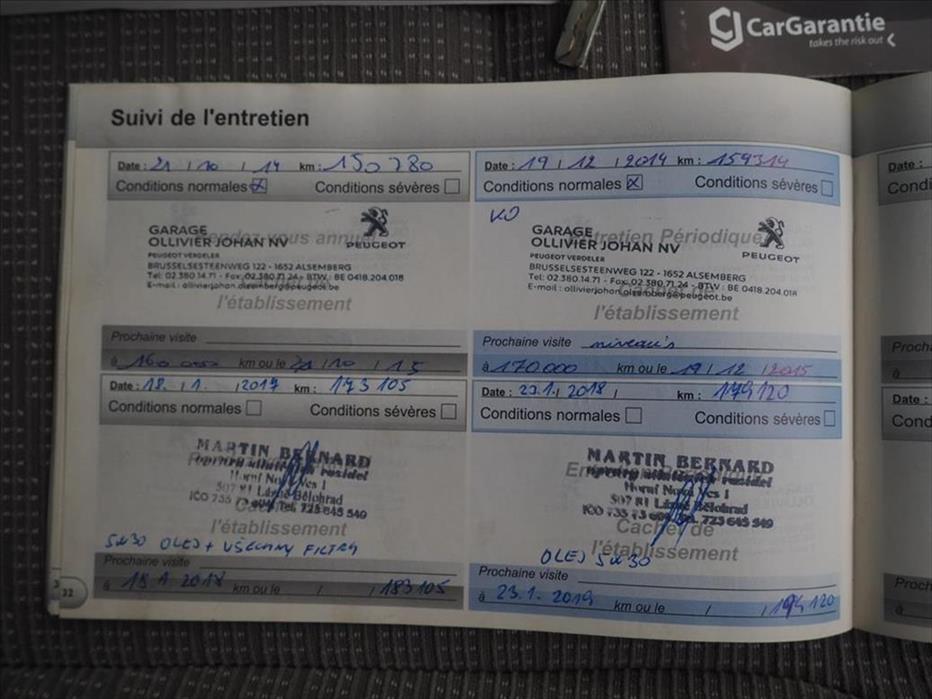 CarGarantie
takes the risk out
Suivi de l'entretien
Date : 21 / 10 / 14 km : 150 780
Conditions normales Conditions sévères
Rendez-vous annuel
GARAGE
OLLIVIER JOHAN NV
PEUGEOT
PEUGEOT VERDELER
BRUSSELSESTEENWEG 122 - 1652 ALSEMBERG
Tel: 02.380.14.71 - Fax: 02.380.71.24 - BTW : BE 0418.204.018
E-mail : ollivierjohan.alsemberg@peugeot.be
Cachet de
l'établissement
Prochaine visite
à 160 000 km ou le 21 / 10 / 15
Date : 19 / 12 / 2014 km : 159314
Conditions normales Conditions sévères
Entretien Périodique
GARAGE
OLLIVIER JOHAN NV
PEUGEOT
PEUGEOT VERDELER
BRUSSELSESTEENWEG 122 - 1652 ALSEMBERG
Tel: 02.380.14.71 - Fax: 02.380.71.24 - BTW : BE 0418.204.018
E-mail : ollivierjohan.alsemberg@peugeot.be
Cachet de
l'établissement
Prochaine visite
à 170.000 km ou le 19 / 12 / 2015
Date : 18. / 1. / 2017 km : 173 105
Conditions normales Conditions sévères
MARTIN BERNARD
Horní Nová Ves 1
507 81 Lázně Bělohrad
Tel. 723 645 549
l'établissement
5W30 OLEJ + VŠECHNY FILTRY
Prochaine visite
à 18.1.2018 km ou le / / 183105
32
Date : 23.1. / 2018 / km : 179120
Conditions normales Conditions sévères
MARTIN BERNARD
Horní Nová Ves 1
507 81 Lázně Bělohrad
Tel. 723 645 549
Cachet de
l'établissement
OLEJ 5W30
Prochaine visite
à 23.1.2019 km ou le / / 194 120
Date :
Date :